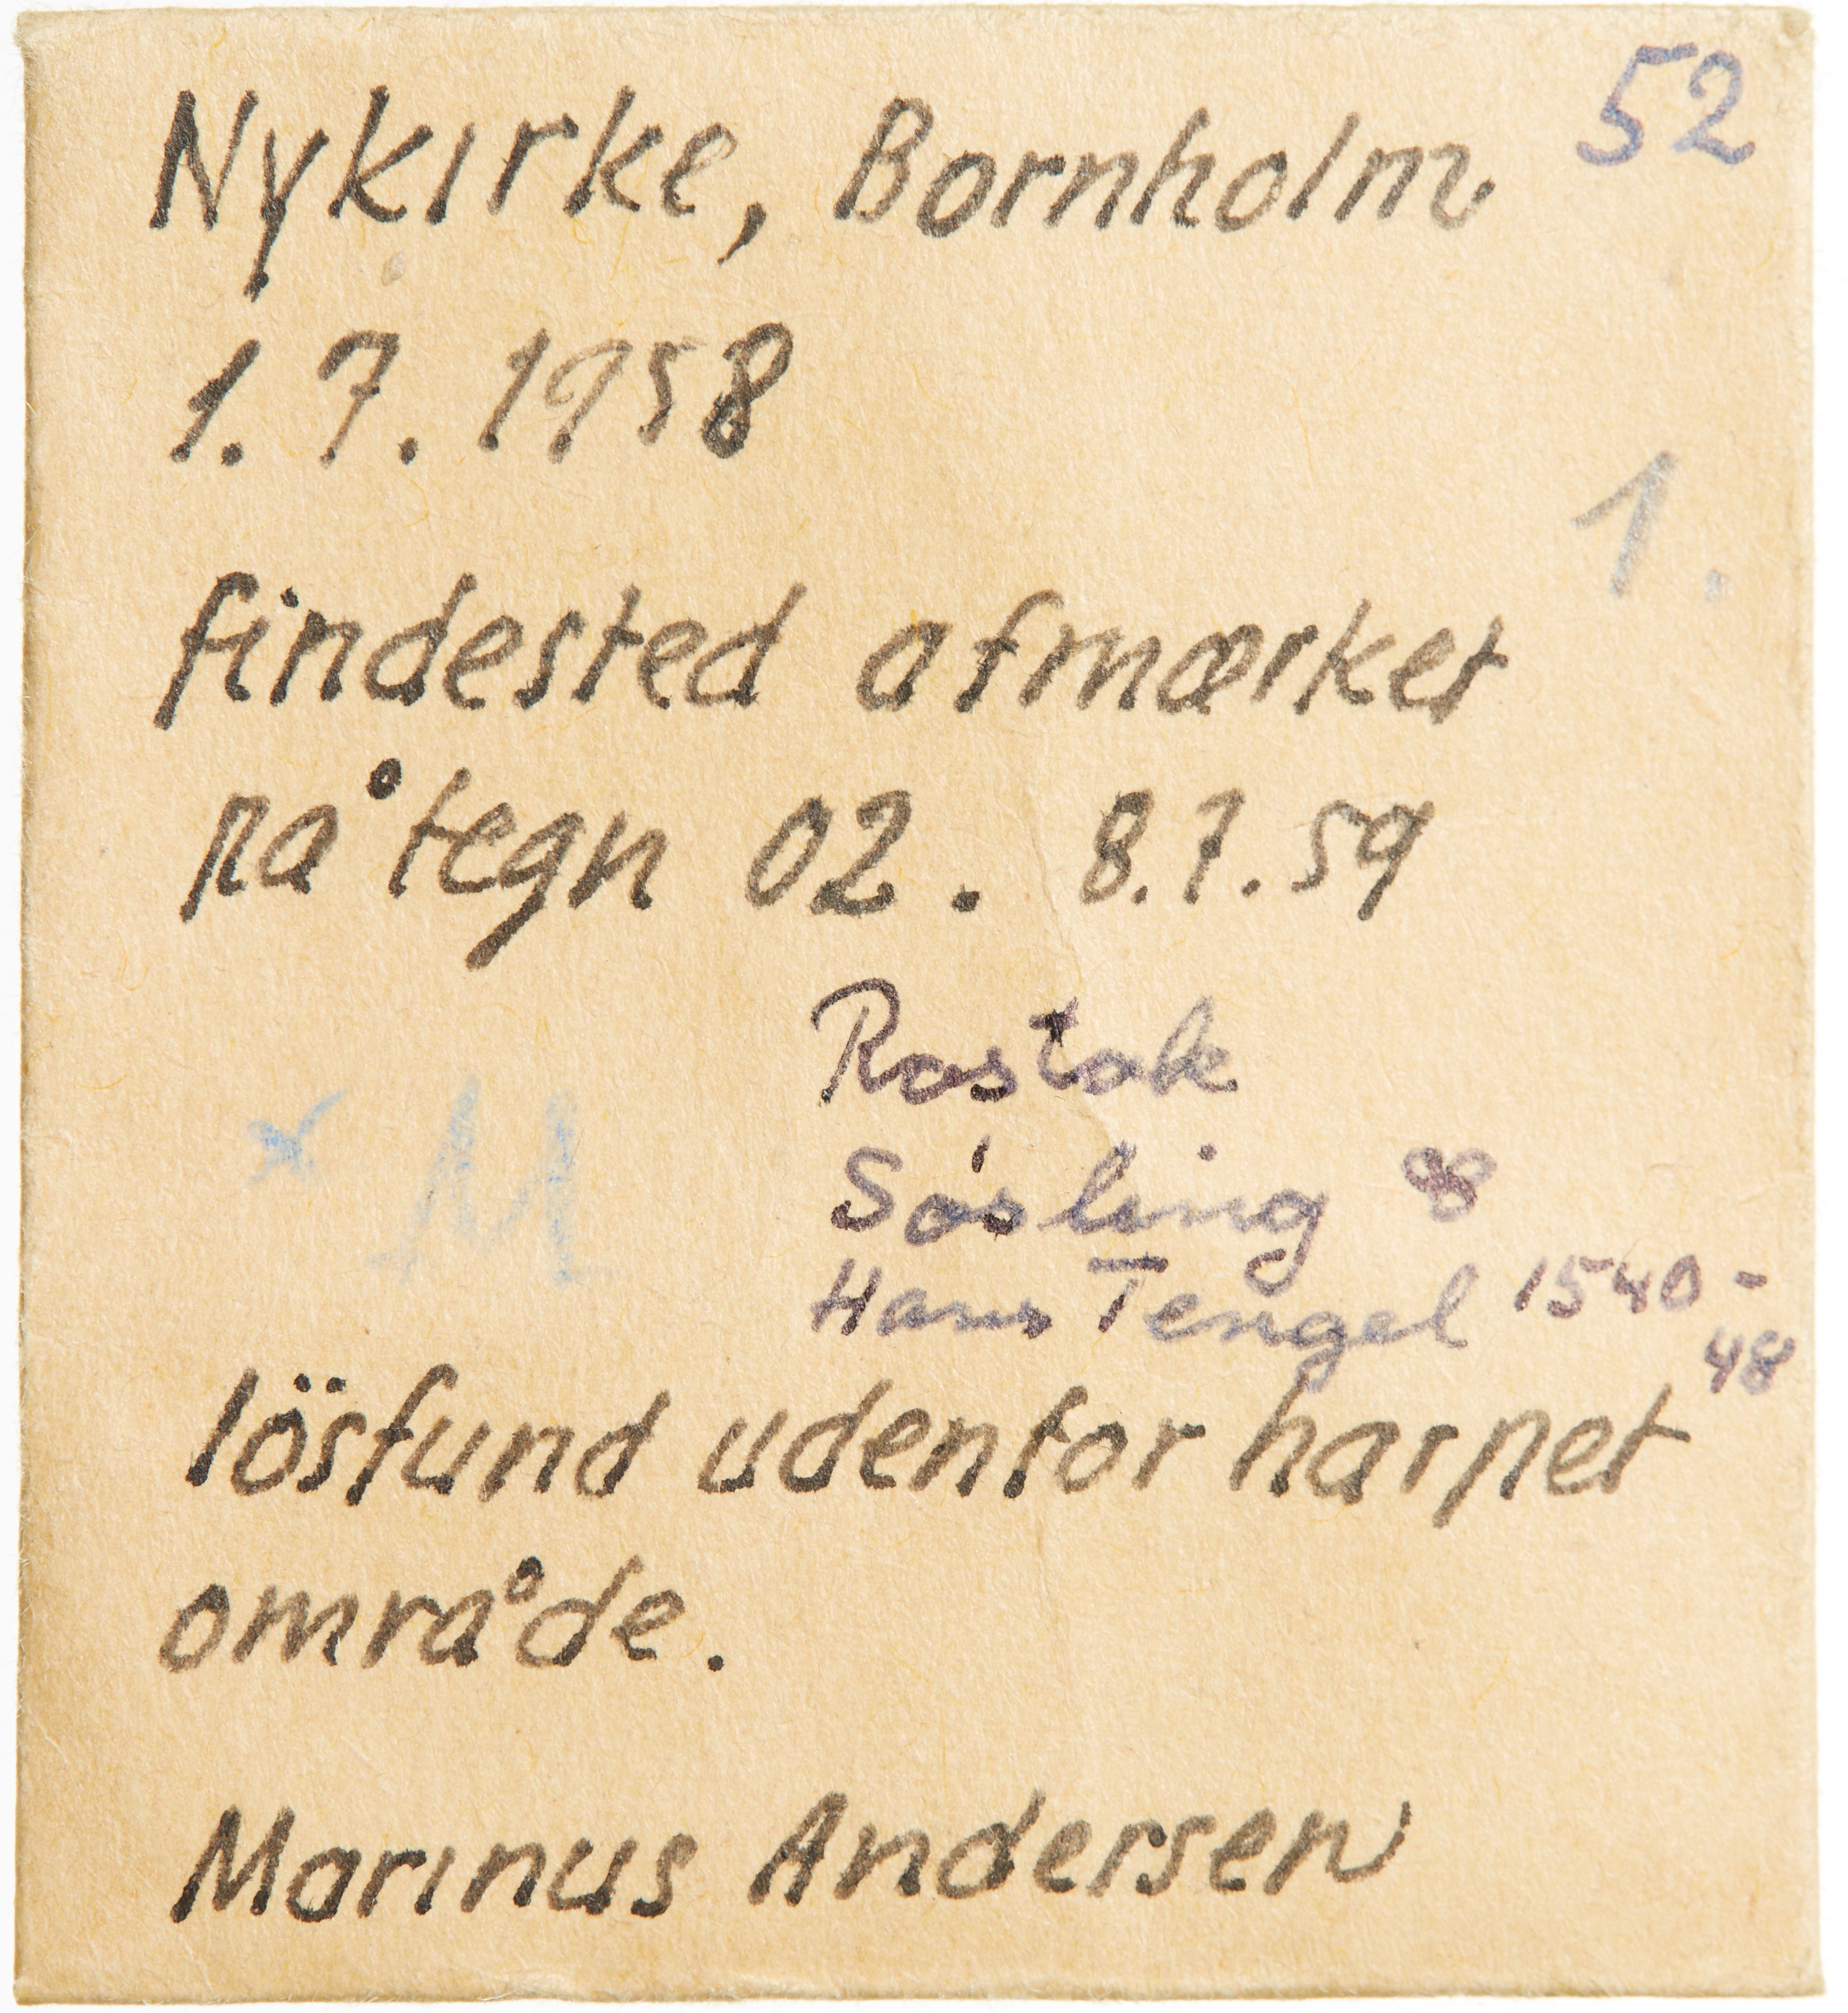 Nykirke, Bornholm 52
1.7.1958
1.
findested afmærket
på tegn 02. 8.7.59
Rostok
Søsling 8
Hans Tengel 1540-
48
lösfund udenfor harpet
område.
Marinus Andersen